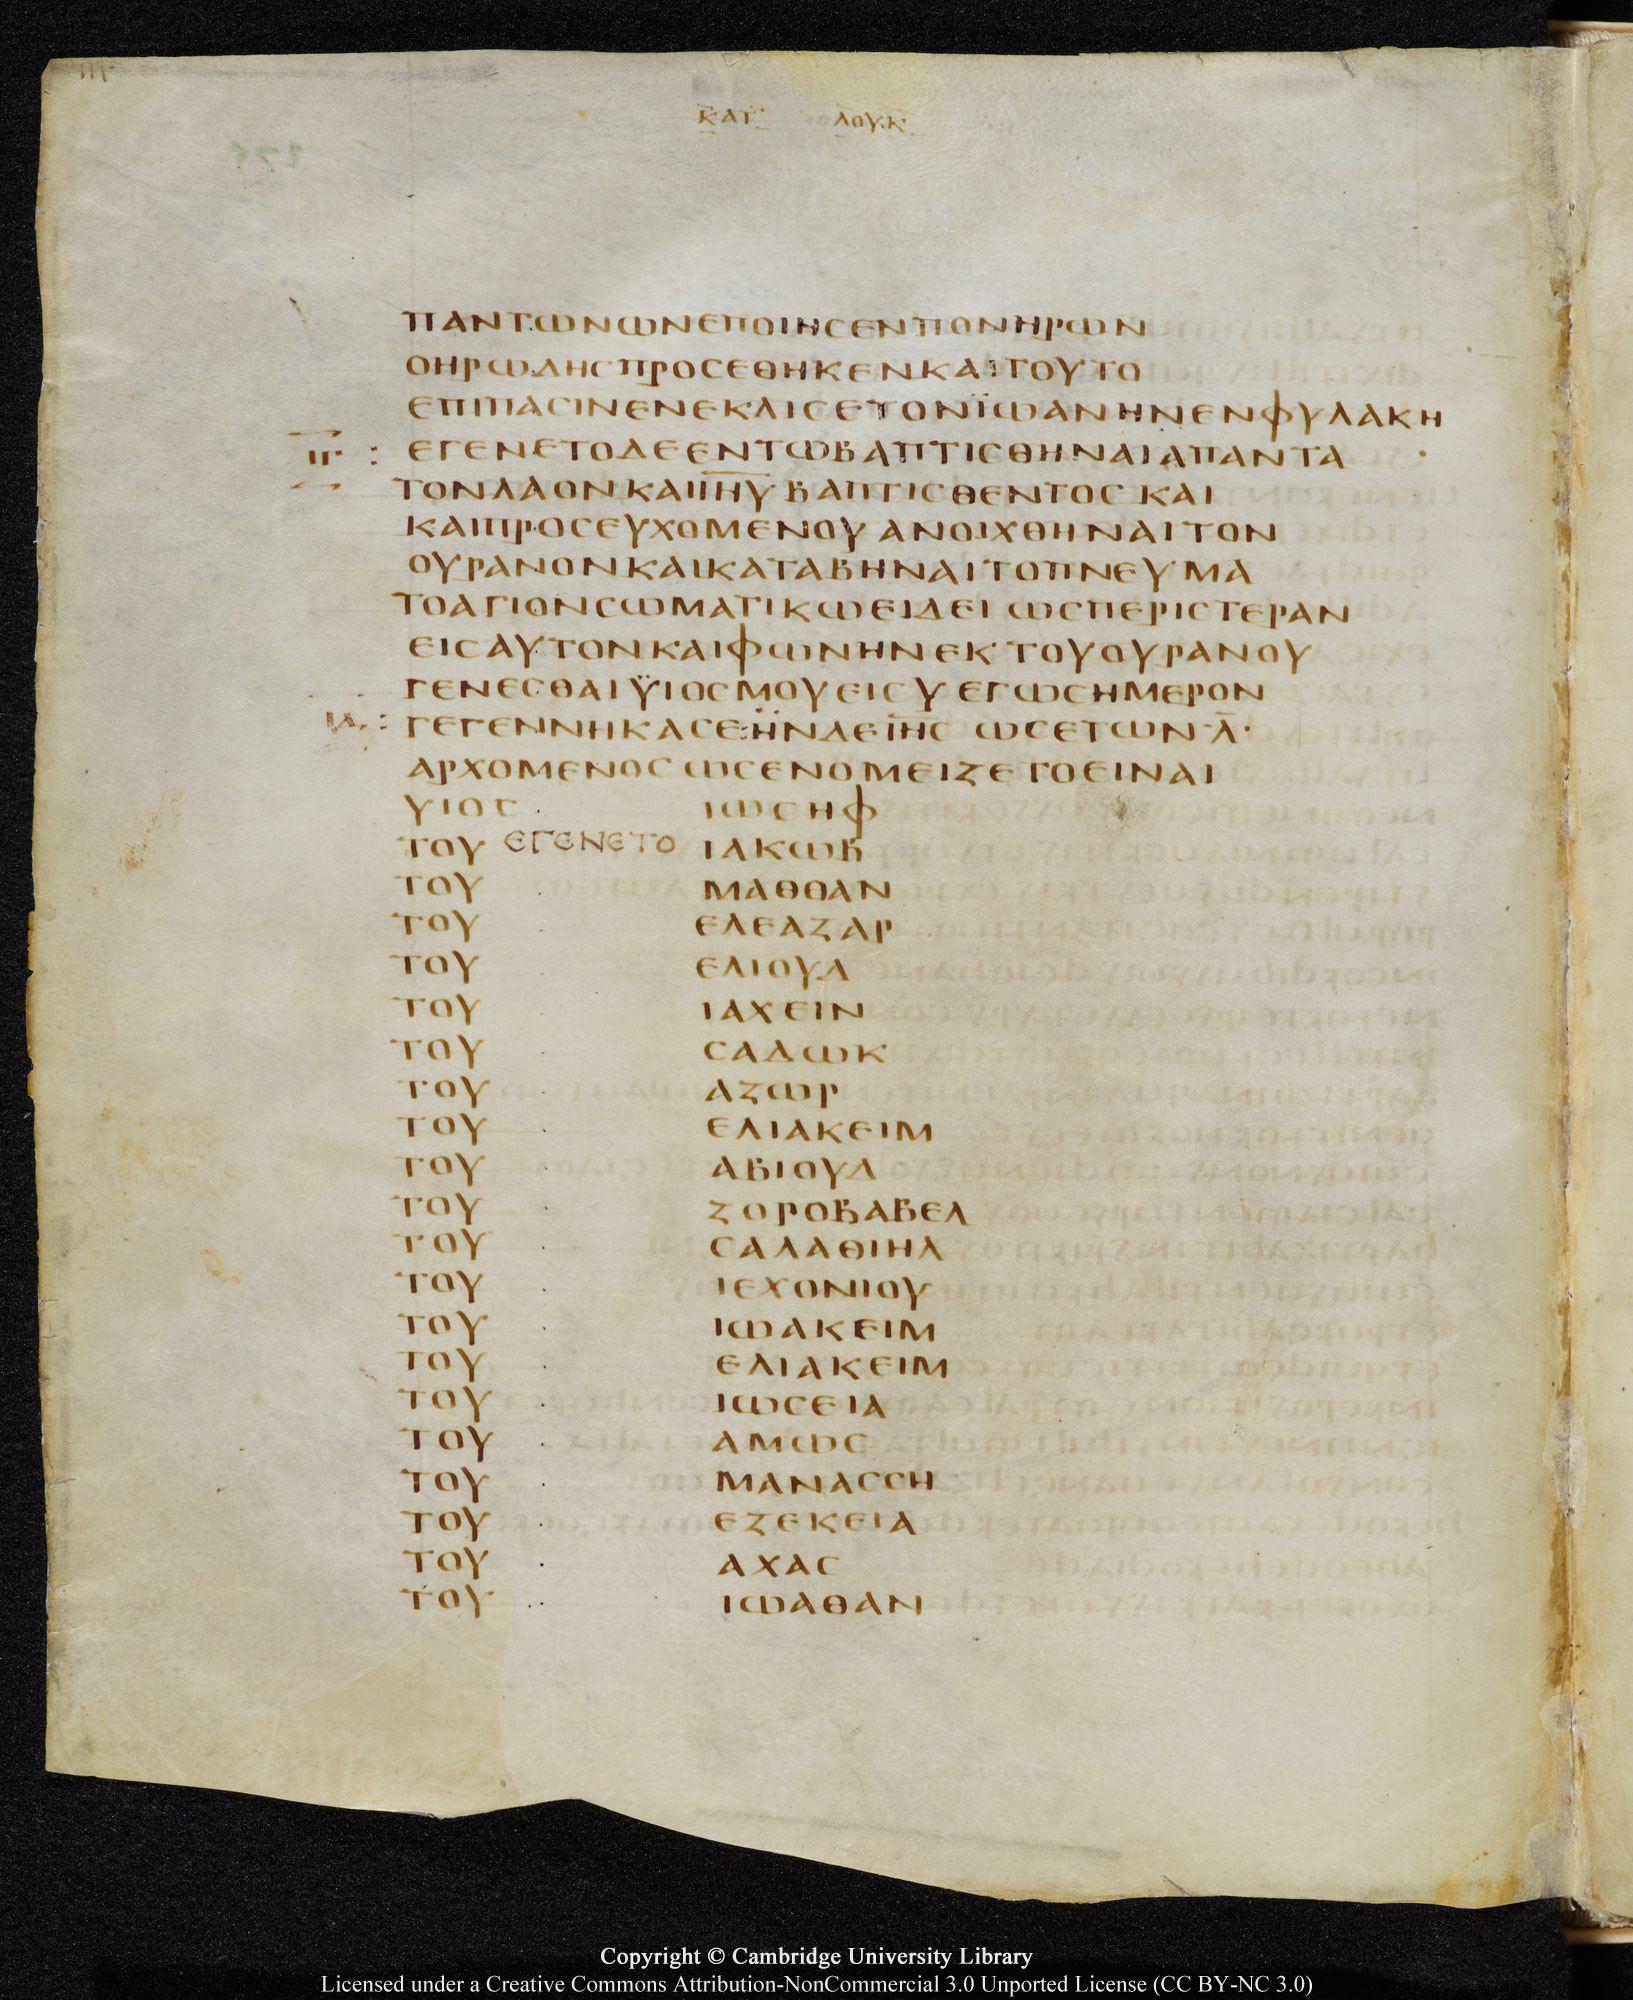 ΚΑΤ ΛΟΥΚ
ΠΑΝΤΩΝΩΝΕΠΟΙΗСΕΝΠΟΝΗΡΩΝ
ΟΗΡΩΔΗСΠΡΟСΕΘΗΚΕΝΚΑΙΤΟΥΤΟ
ΕΠΙΠΑСΙΝΕΝΕΚΛΙСΕΤΟΝΪΩΑΝΗΝΕΝΦΥΛΑΚΗ
ΙΓ : ΕΓΕΝΕΤΟΔΕΕΝΤΩΒΑΠΤΙСΘΗΝΑΙΑΠΑΝΤΑ
ΤΟΝΛΑΟΝΚΑΙΙΗΥ ΒΑΠΤΙСΘΕΝΤΟС ΚΑΙ
ΚΑΙΠΡΟСΕΥΧΟΜΕΝΟΥ ΑΝΟΙΧΘΗΝΑΙ ΤΟΝ
ΟΥΡΑΝΟΝΚΑΙΚΑΤΑΒΗΝΑΙΤΟΠΝΕΥΜΑ
ΤΟΑΓΙΟΝСΩΜΑΤΙΚΩΕΙΔΕΙ ΩСΠΕΡΙСΤΕΡΑΝ
ΕΙСΑΥΤΟΝΚΑΙΦΩΝΗΝΕΚ ΤΟΥΟΥΡΑΝΟΥ
ΓΕΝΕСΘΑΙ ΫΙΟСΜΟΥΕΙСΥ ΕΓΩСΗΜΕΡΟΝ
ΙΔ : ΓΕΓΕΝΝΗΚΑСΕ:ΗΝΔΕΙΗС ΩСΕΤΩΝ·Λ̅·
ΑΡΧΟΜΕΝΟС ΩСΕΝΟΜΕΙΖΕΤΟΕΙΝΑΙ
ΥΙΟС ΙΩСΗΦ
ΤΟΥ ΕΓΕΝΕΤΟ ΙΑΚΩΒ
ΤΟΥ ΜΑΘΘΑΝ
ΤΟΥ ΕΛΕΑΖΑΡ
ΤΟΥ ΕΛΙΟΥΔ
ΤΟΥ ΙΑΧΕΙΝ
ΤΟΥ СΑΔΩΚ
ΤΟΥ ΑΖΩΡ
ΤΟΥ ΕΛΙΑΚΕΙΜ
ΤΟΥ ΑΒΙΟΥΔ
ΤΟΥ ΖΟΡΟΒΑΒΕΛ
ΤΟΥ СΑΛΑΘΙΗΛ
ΤΟΥ ΙΕΧΟΝΙΟΥ
ΤΟΥ ΙΩΑΚΕΙΜ
ΤΟΥ ΕΛΙΑΚΕΙΜ
ΤΟΥ ΙΩСΕΙΑ
ΤΟΥ ΑΜΩС
ΤΟΥ ΜΑΝΑССΗ
ΤΟΥ ΕΖΕΚΕΙΑ
ΤΟΥ ΑΧΑС
ΤΟΥ ΙΩΑΘΑΝ
Copyright © Cambridge University Library
Licensed under a Creative Commons Attribution-NonCommercial 3.0 Unported License (CC BY-NC 3.0)